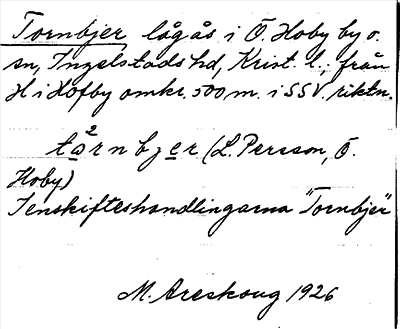 Tornbjer, lågås i Ö. Hoby by o.
sn, Ingelstads hd, Krist. l.; från
H i Hofby omkr. 500 m. i SSV. riktn.
tω²rnbjer (L. Persson, Ö.
Hoby)
I enskifteshandlingarna "Tornbjer"
M. Areskoug 1926